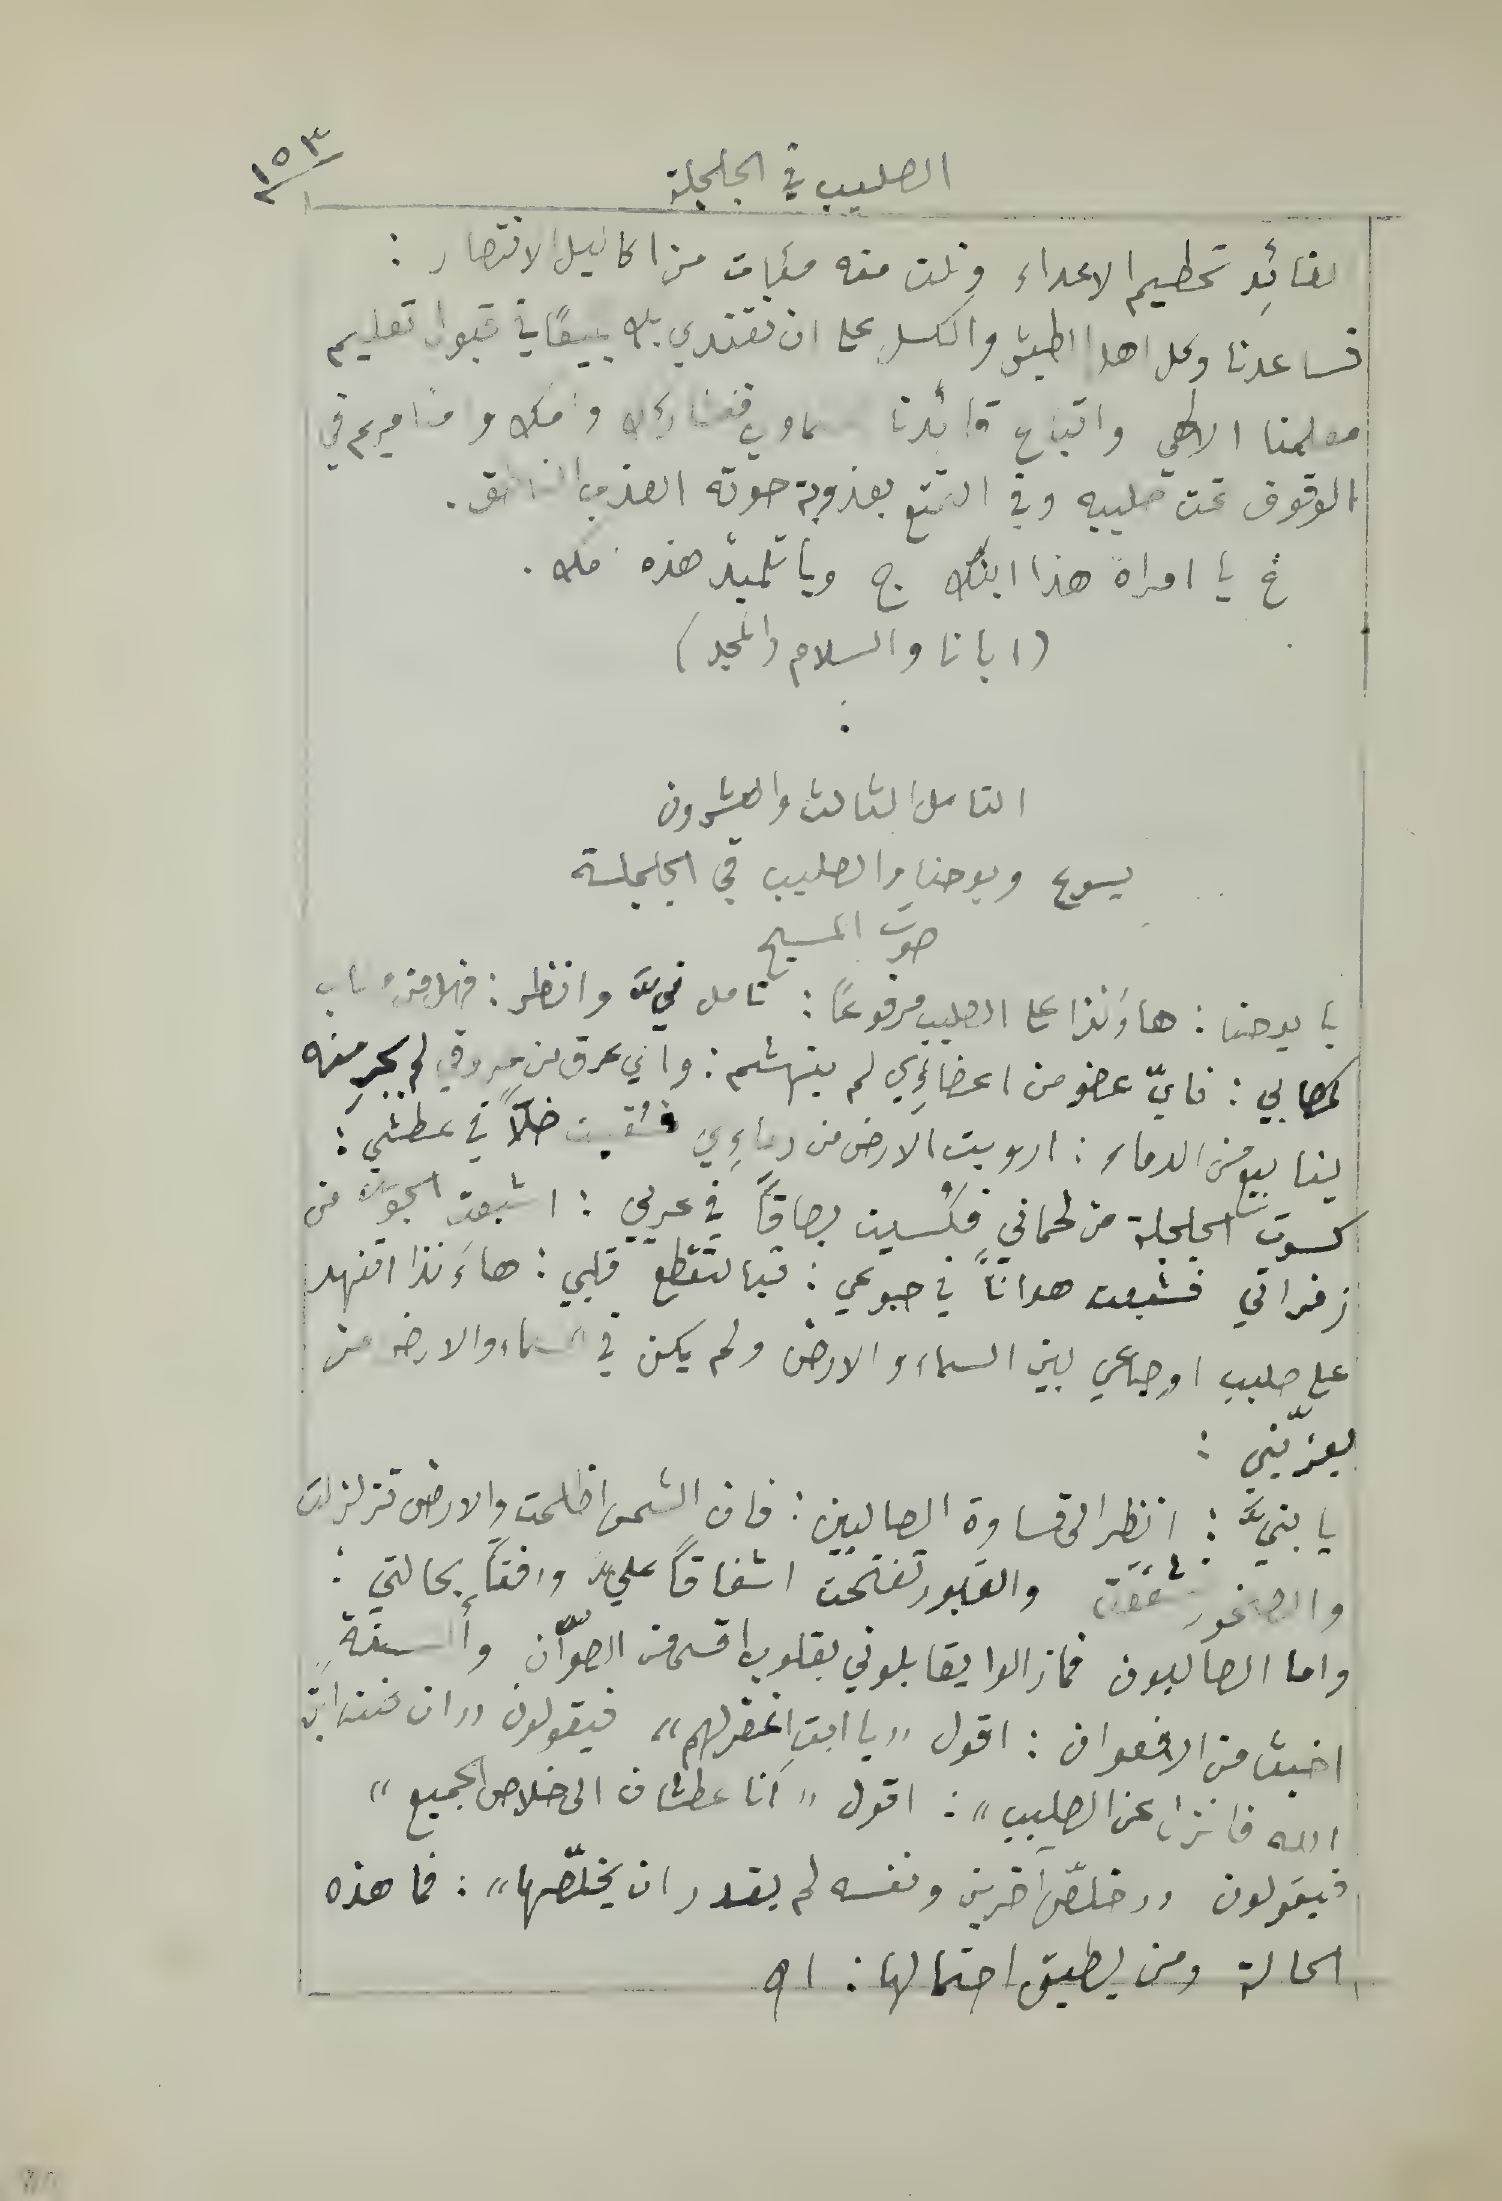 ١٥٣
الصليب في الجلجلة
لقائدِ تحطيم الاعداء ونلت منه مئات من اكاليل الانتصار :
فساعدنا وكل اهل الطيش والكسل على ان نقتدي بك جميعًا في قبول تعليم
معلمنا الالهي واتباع قائدنا فنشارك وامك وامنا مريم في
الوقوف تحت صليبه وفي التمتع بعذوبة صوته العذب .
خ يا امراة هذا ابنك ج ويا تلميذ هذه امك .
(ابانا والسلام والمجد)
التامل الثالث والعشرون
يسوع ويوحنا والصليب في الجلجلة
صوت المسيح
يا يوحنا : هاءَنذا على الصليب مرفوعًا : تامل فيَّ وانظر : فهل من
لمصابي : فايّ عضو من اعضاءِي لم ينهشم : واي عرق من عروقي لم يجرِ منه
ينابيع من الدماء : ارويت الارض من دماءِي فسُقيت خلًّا في عطشي :
كسوت الجلجلة من لحماني فكُسيت بصاقًا في عريي : اشبعت الجوَّ من
زفراتي فشبعت هوانًا في جوعي : فيا لتقطع قلبي : هاءَنذا اتنهد
على صليب اوجاعي بين السماء والارض ولم يكن في السماء والارض من
يعزّيني :
يا بنيَّ : انظر الى قساوة الصالبين : فان الشمس اظلمت والارض تزلزلت
والصخور تشققت والقبور تفتحت اشفاقًا عليَّ ورافةً بحالتي :
واما الصالبون فما زالوا يقابلوني بقلوب اقسى من الصوّان وألسنةٍ
اخبث من الافعوان : اقول «يا ابتِ اغفر لهم» فيقولون «ان كنت ابن
الله فانزل عن الصليب» : اقول «انا عطشان الى خلاص الجميع»
فيقولون «خلّص آخرين ونفسه لم يقدر ان يخلّصها» : فما هذه
الحالة ومن يطيق احتمالها : اه